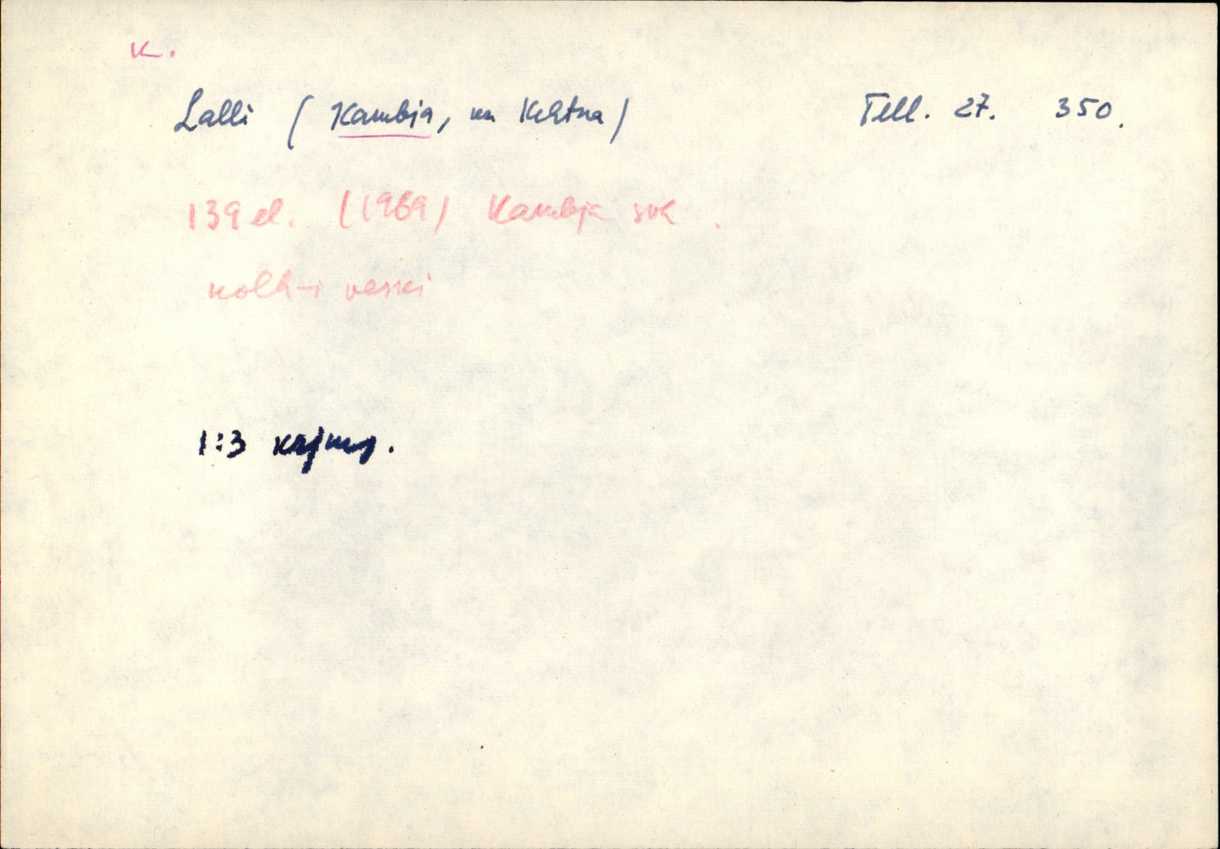 K.
Lalli (Kambja, nn Kehtna) Tell. 27. 350.
139 el. (1969) Kambja svk.
kolh-i veski
1:3